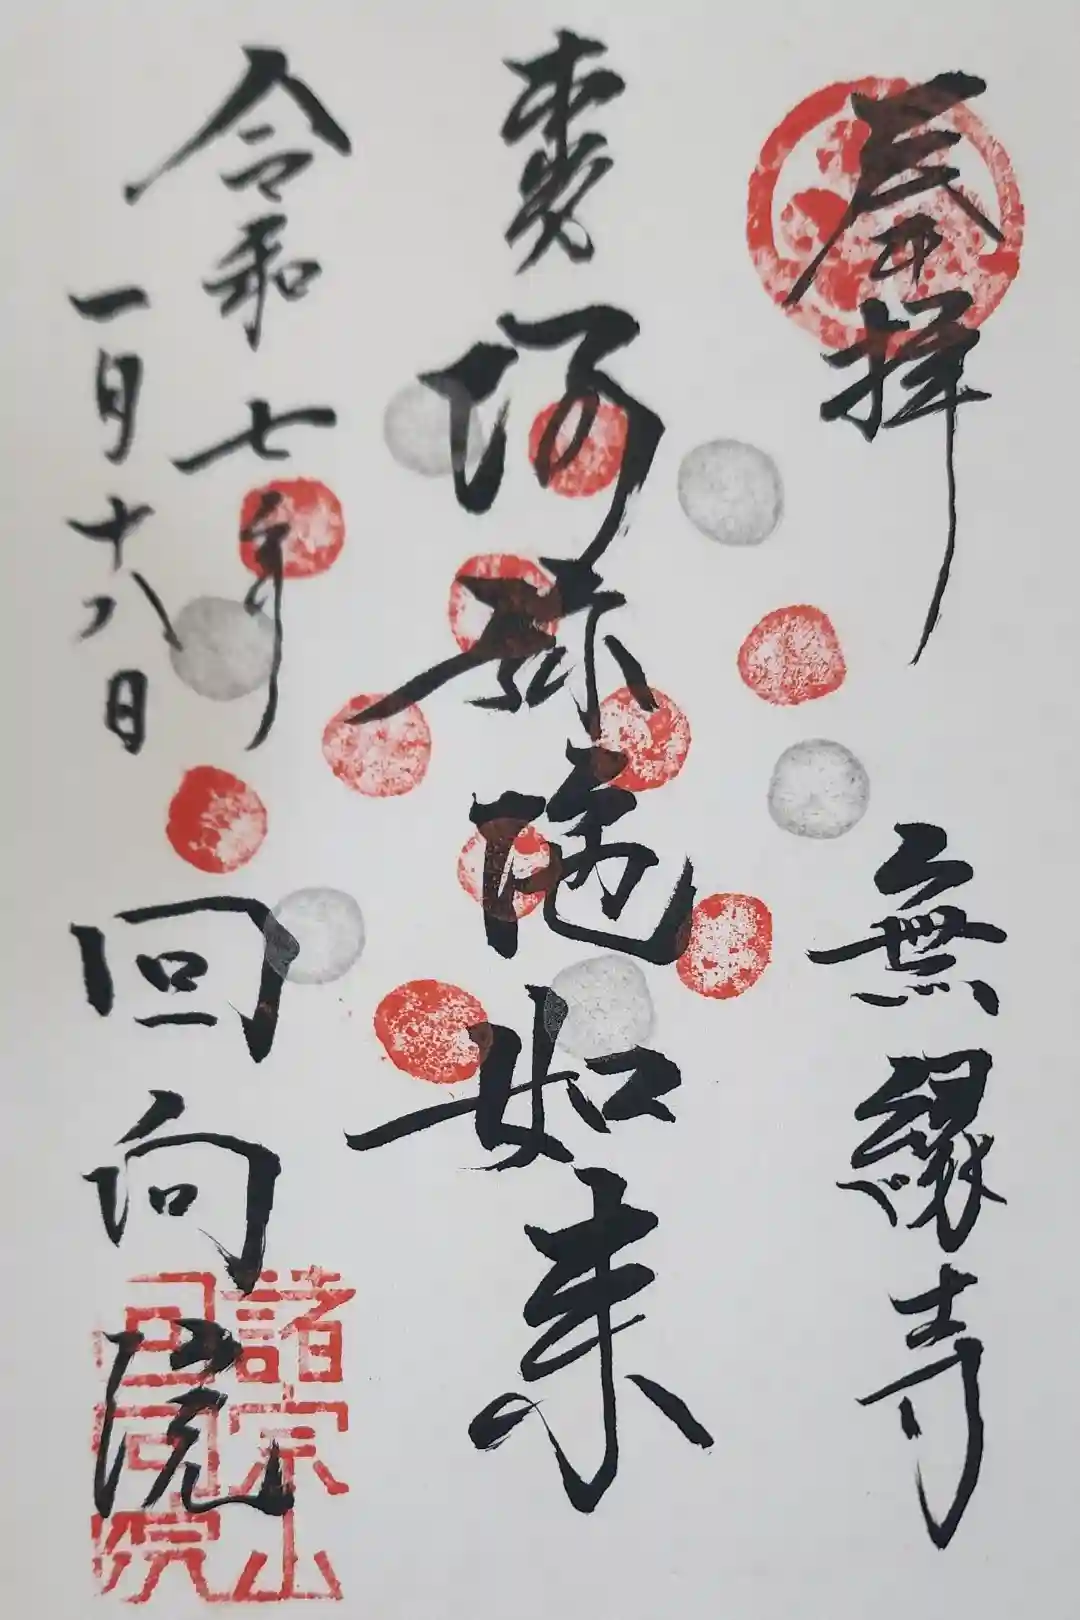 奉拝
無縁寺
阿弥陀如来
令和七年
一月十八日
回向院
諸宗山
回向院